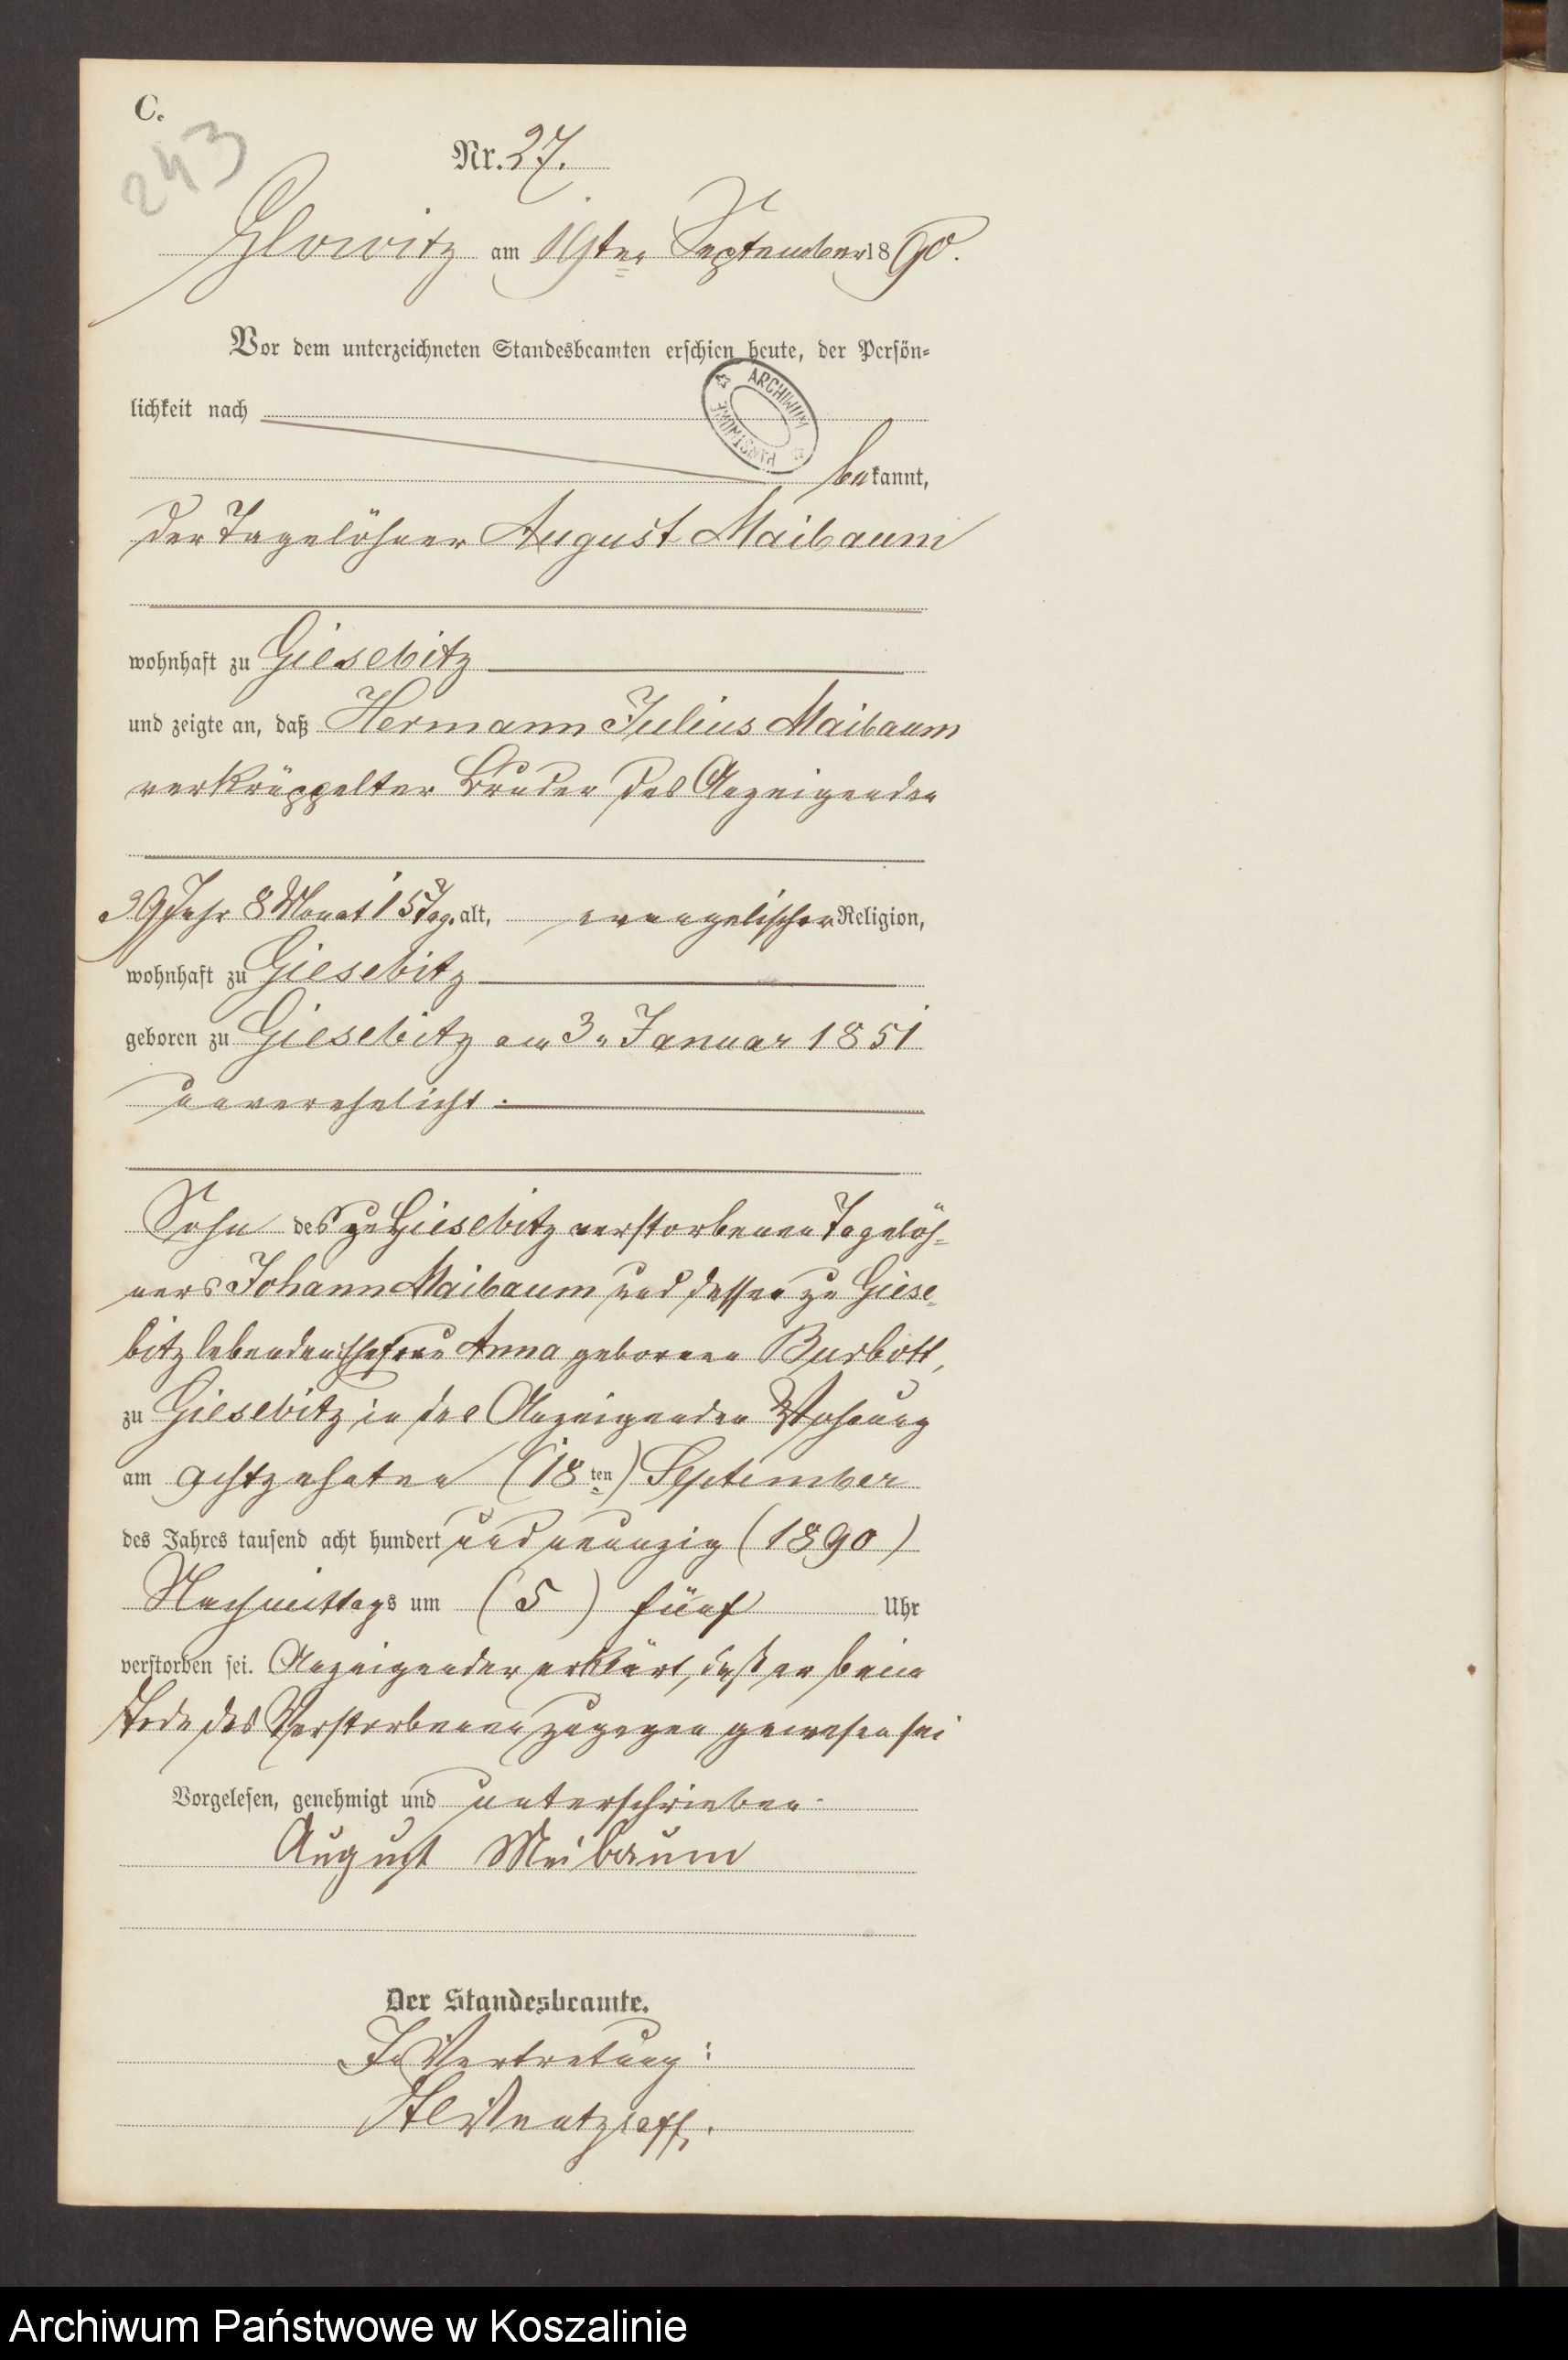 C.
243
Nr. 27.
Glowitz am 19ten September 1890.
Vor dem unterzeichneten Standesbeamten erschien heute, der Persön-
lichkeit nach
ARCHIWUM PAŃSTWOWE
bekannt,
der Tagelöhner August Maibaum
wohnhaft zu Giesebitz
und zeigte an, daß Hermann Julius Maibaum
verkrüppelter Bruder des Anzeigenden
39 Jahr 8 Monat 15 Tag. alt, evangelischer Religion,
wohnhaft zu Giesebitz
geboren zu Giesebitz am 3n Januar 1851
unverehelicht.
Sohn des zu Giesebitz verstorbenen Tagelöh-
ners Johann Maibaum und dessen zu Giese-
bitz lebenden Ehefrau Anna geborenen Burbott,
zu Giesebitz in des Anzeigenden Wohnung
am achtzehnten (18ten) September
des Jahres tausend acht hundert und neunzig (1890)
Nachmittags um (5) fünf Uhr
verstorben sei. Anzeigender erklärt, daß er beim
Tode des Verstorbenen zugegen gewesen sei
Vorgelesen, genehmigt und unterschrieben.
August Meibaum
Der Standesbeamte.
In Vertretung:
Wentzlaff.
Archiwum Państwowe w Koszalinie